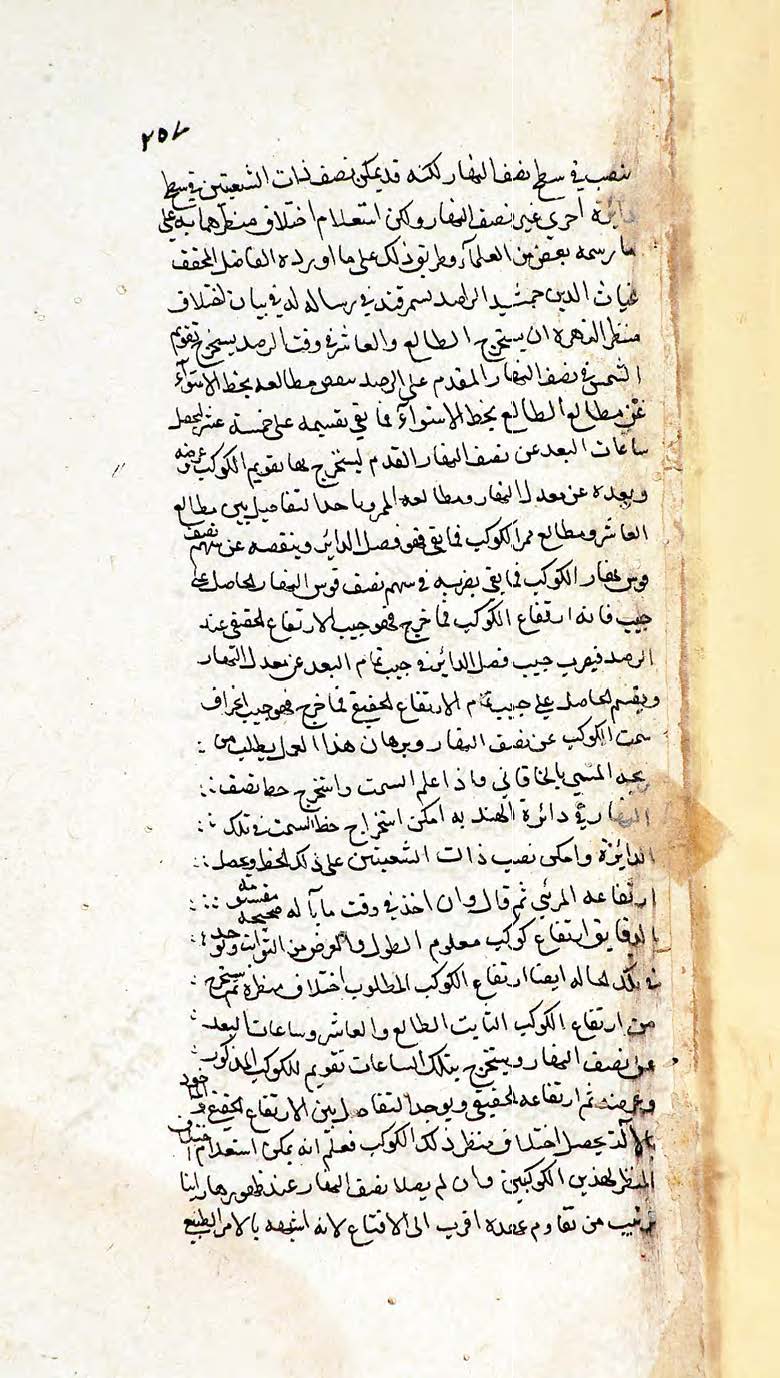 ٢٥٧
ينصب في سطح نصف النهار لكنه قد يمكن نصف ذات الشعبتين في سطح
دائرة اخري غير نصف النهار ولكن استعلام اختلاف منظرهما به علي
ما رسمه بعض من العلمآء وطريق ذلك على ما اورده الفاضل المحقق
غياث الدين جمشيد الراصد بسمرقند في رساله له في بيان اختلاف
منظر الزهره ان يستخرج الطالع والعاشر في وقت الرصد يستخرج تقويم
الشمس في نصف النهار المقدم على الرصد ينقص مطالعه بخط الاستوآء
عن مطالع الطالع بخط الاستوآء فما بقي نقسيمه على خمسة عشر ليحصل
ساعات البعد عن نصف النهار القدم ليستخرج بها تقويم الكوكب وعرضه
وبعده عن معدل النهار ومطالعه الممر وياخذ التفاضل بين مطالع
العاشر ومطالع ممر الكوكب فما بقي فهو فضل الداير وينقصه عن سهم نصف
قوس نهار الكوكب فما بقي يضربه في سهم نصف قوس النهار الحاصل على
جيب فانه ارتفاع الكوكب فما خرج فهو جيب الارتفاع الحقيقي عند
الرصد فيضرب جيب فضل الداير في جيب تمام البعد عن معدل النهار
ويقسم الحاصل علي جيب تمام الارتفاع الحقيقي فما خرج فهو جيب انحراف
سمت الكوكب عن نصف النهار وبرهان هذا العمل يطلب من
زيجه المسمي بالخاقاني واذا علم السمت واستخرج خط نصف
النهار في دائرة الهند به امكن استخراج خط السمت في تلك
الدايرة وامكن نصب ذات الشعبتين على ذلك الخط ويحصل
ارتفاعه المرئي ثم قال وان اخذ في وقت ما بآله صحيحه مقسومه
بالدقايق ارتفاع كوكب معلوم الطول والعرض من الثوابت ويوخذ
في تلك الحاله ايضا ارتفاع الكوكب المطلوب اختلاف منظره ثم يستخرج
من ارتفاع الكوكب الثابت الطالع والعاشر وساعات البعد
عن نصف النهار ويستخرج بتلك الساعات تقويم للكوكب المذكور
وعرضه ثم ارتفاعه الحقيقي ويوخذ التفاضل بين الارتفاع الحقيقي والماخوذ
بالآلة يحصل اختلاف منظر ذلك الكوكب فعلم انه يمكن استعلام اختلاف
المنظر لهذين الكوكبين وان لم يصلا نصف النهار عند ظهورهما
ترتيب من تقاوم عهده اقرب الى الاقناع لانه اشبه بالامر الطبيع